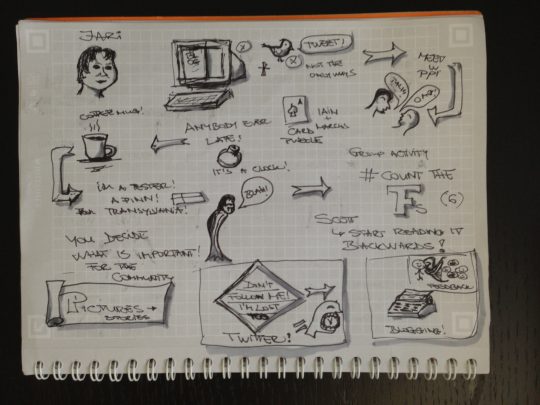 JARI
TWEET!
NOT THE
ONLY WAYS
MEET
W
PPL
TALK!
COFFEE MUG!
ANYBODY EVER
LATE!
IT'S A CLOCK!
IAIN
+
MARCUS
CARD
PUZZLE
GROUP ACTIVITY
# COUNT THE
F
(6)
I'M A TESTER!
A FINN!
TRANSYLVANIA!
BLAH!
SCOTT
↳ START READING IT
BACKWARDS!
YOU DECIDE
WHAT IS IMPORTANT!
FOR THE
COMMUNITY
PICTURES +
STORIES
DON'T
FOLLOW ME!
I'M LOST
TOO
TWITTER!
FEEDBACK
BLOGGING!